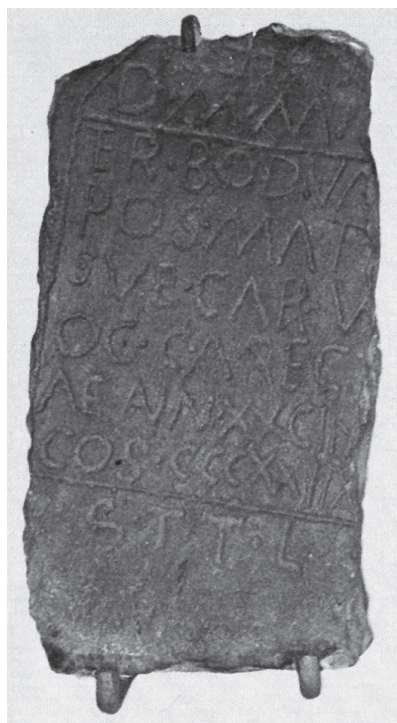 D·M·M
FR·BODVA
POS·MAT
SVE·CAR·V
OG·C·A·REG
AE AIN·XV·CIN
COS·CCCXVIIX
S T T·L